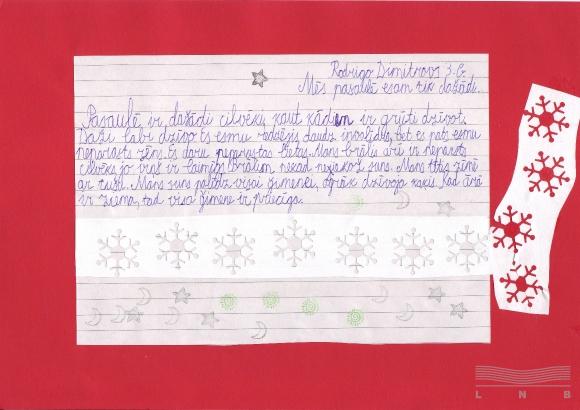 Rodrigo Dimitrovs 3.c
Mēs pasaulē esam tik dažādi.
Pasaulē ir dažādi cilvēki, kaut kādiem ir grūti dzīvot.
Daži labi dzīvo. Es esmu redzējis daudz invalīdus, bet es pats esmu
neparasts zēns. Es daru neparastas lietas. Mans brālis arī ir neparasts
cilvēks jo viņš ir laimīgs. brālim nekad nejakož suns. Mans tētis zīmē
ar tušu. Mans suns palīdz visai ģimenei, agrāk dzīvoja kaķis. Kad ārā
ir ziema, tad visa ģimene ir priecīga.
L N B